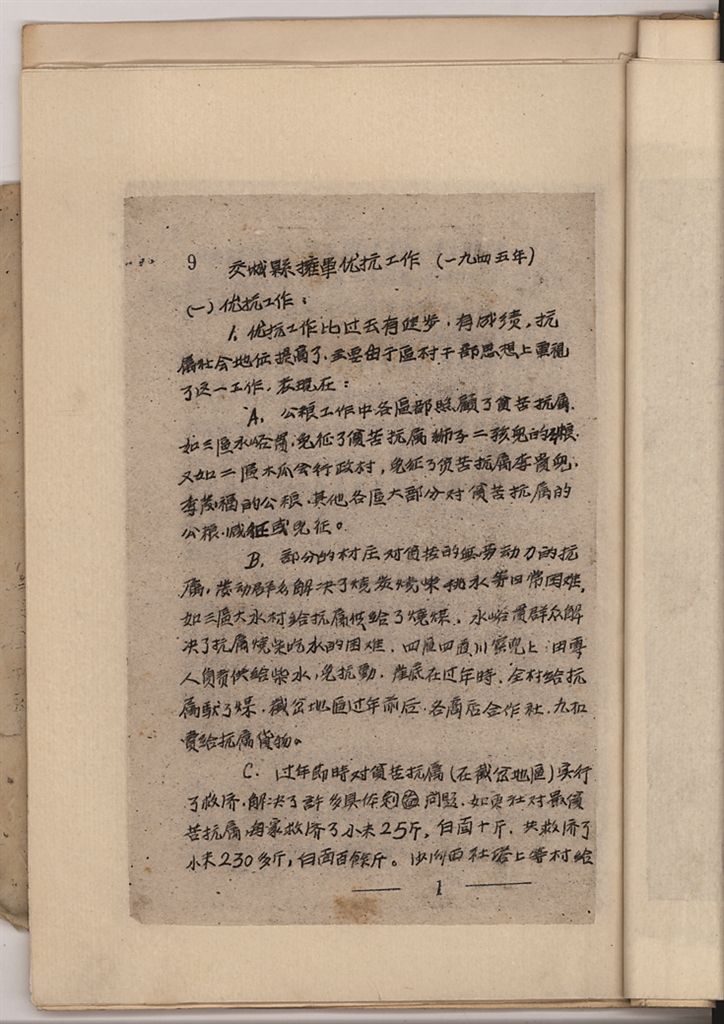 9 交城縣擁軍优抗工作 (一九四五年)
(一) 优抗工作：
1. 优抗工作比过去有進步，有成绩，抗
屬社会地位提高了，主要由于區村干部思想上重視
了这一工作，表現在：
A. 公粮工作中各區都照顧了貧苦抗屬.
如三區水峪貫，免征了貧苦抗屬獅子二孩兒的公粮.
又如二區木瓜会行政村，免征了貧苦抗屬李貴兒，
李茂福的公粮.其他各區大部分对貧苦抗屬的
公粮.减征或免征。
B. 部分的村庄对貧苦的無劳动力的抗
屬，發动群众解决了燒炭燒柴挑水等日常困难，
如三區大水村給抗屬供給了燒煤. 水峪貫群众解
决了抗屬燒柴吃水的困难. 四區四道川窯兒上.由專
人負責供給柴水，免抗勤. 底在过年時. 全村給抗
屬馱了煤. 截岔地區过年前后.各商店合作社.九扣
賣給抗屬貨物。
C. 过年節時对貧苦抗屬(在截岔地區)实行
了救济.解决了許多具体問題. 如東社对最貧
苦抗屬.每家救济了小米25斤，白面十斤. 共救济了
小米230多斤，白面百餘斤。西社塔上等村給
1